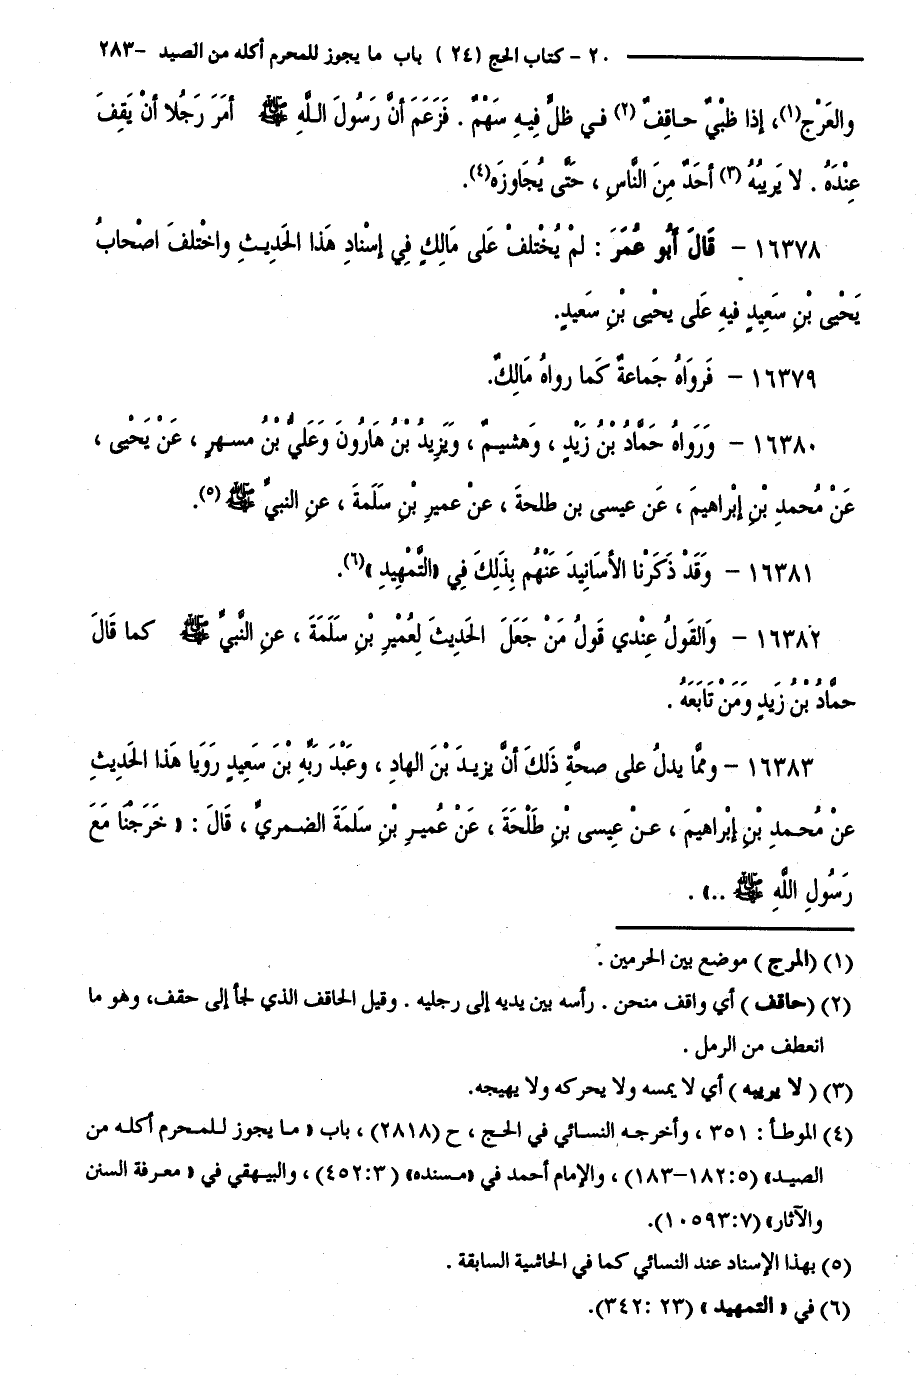 ٢٠ - كتاب الحج (٢٤) باب ما يجوز للمحرم أكله من الصيد -٢٨٣
والعَرْجِ(١)، إذا ظَبْيٌ حـاقِفٌ (٢) فـي ظلٍّ فِيـهِ سَهْمٌ . فَزَعَمَ أنَّ رَسُولَ اللَّهِ ﷺ أمَرَ رَجُلا أنْ يَقِفَ
عِنْدَهُ . لا يَرِيبُهُ (٣) أحَدٌ مِنَ النَّاسِ ، حَتَّى يُجَاوزَه(٤).
١٦٣٧٨ - قَالَ أَبُو عُمَرَ : لمْ يُخْتلفْ عَلى مَالِكٍ فِي إسْنادِ هَذا الحَديـثِ واخْتلفَ اصْحابُ
يَحْيى بْنِ سَعِيدٍ فيهِ عَلى يحْيى بْنِ سَعيدٍ.
١٦٣٧٩ - فَروَاهُ جَماعةٌ كَما رواهُ مَالِكٌ.
١٦٣٨٠ - وَرَواهُ حَمَّادُ بْنُ زَيْدٍ ، وَهشيـمٌ ، وَيَزِيدُ بْنُ هَارُونَ وَعَليُّ بْنُ مسهرٍ ، عَنْ يَحْيى ،
عَنْ مُحمدِ بْنِ إبْراهيمَ ، عَن عيسى بن طلحةَ ، عنْ عميرِ بْنِ سَلَمةَ ، عنِ النبيِّ ﷺ (٥).
١٦٣٨١ - وَقَدْ ذَكَرْنا الأسَانِيدَ عَنْهُم بِذَلِكَ فِي «التَّمْهِيدِ»(٦).
١٦٣٨٢ - وَالقَولُ عِنْدي قَولُ مَنْ جَعَلَ الحَديثَ لِعُمْيْرِ بْنِ سَلَمَةَ ، عنِ النَّبيِّ ﷺ كما قَالَ
حمَّادُ بْنُ زَيَدٍ وَمَنْ تَابَعَهُ .
١٦٣٨٣ - وممَّا يدلُ على صحَّةِ ذَلكَ أنَّ يزيـدَ بْنَ الهادِ ، وعَبْدَ رَبِّهِ بْنَ سَعِيدٍ رَوَيَا هَذا الحَديثِ
عنْ مُحـمدِ بْنِ إبْراهيمَ ، عـنْ عِيسى بْنِ طَلْحَةَ ، عَنْ عُميـرِ بْنِ سَلَمةَ الضـمريِّ ، قَالَ : « خَرَجْنَا مَعَ
رَسُولِ اللَّهِ ﷺ ..» .
(١) (المرج) موضع بين الحرمين .
(٢) (حاقف) أي واقف منحن . رأسه بين يديه إلى رجليه . وقيل الحاقف الذي لجأ إلى حقف، وهو ما
انعطف من الرمل .
(٣) ( لا يريبه ) أي لا يمسه ولا يحركه ولا يهيجه.
(٤) الموطـأ : ٣٥١ ، وأخرجـه النسـائي في الحـج ، ح (٢٨١٨) ، باب « مـا يجوز للـمحرم أكلـه من
الصيـد» (٥:١٨٢-١٨٣) ، والإمام أحمد في «مـسنده» (٣:٤٥٢) ، والبيهقي في « معرفة السنن
والآثار» (٧:١٠٥٩٣).
(٥) بهذا الإسناد عند النسائي كما في الحاشية السابقة .
(٦) في « التمهيد » (٢٣ :٣٤٢).